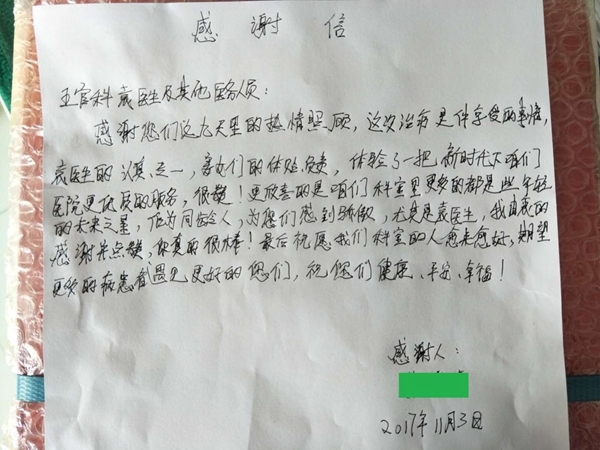 感谢信
五官科袁医生及其他医务人员：
感谢您们这九天里的热情照顾，这次治病是件享受的事情，
袁医生的认真、专一，护士们的体贴、负责，体验了一把新时代下咱们
医院更优质的服务，很赞！更欣喜的是咱们科室里更多的都是些年轻
的未来之星，作为同龄人，为您们感到骄傲，尤其是袁医生，我由衷的
感谢并点赞，你真的很棒！最后祝愿我们科室的人愈来愈好，期望
更多的病患者遇见更好的您们，祝您们健康、平安、幸福！
感谢人：
2017年11月3日